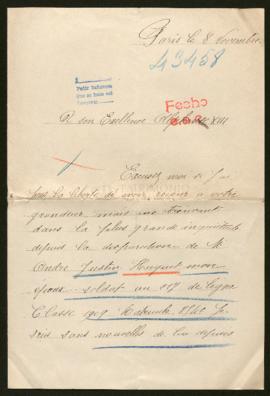 Paris le 8 Novembre
43458
Pedir informes
Fecho
A son Excellence Alphonse XIII
Excusez moi si j'ai
pris la liberté de avoir recour à votre
grandeur mais me trouvant
dans la plus grande inquiétude
depuis la disparition de M.
André Justin Huguet mon
époux soldat au
Classe 1909 Matricule
suis sans nouvelles de lui depuis